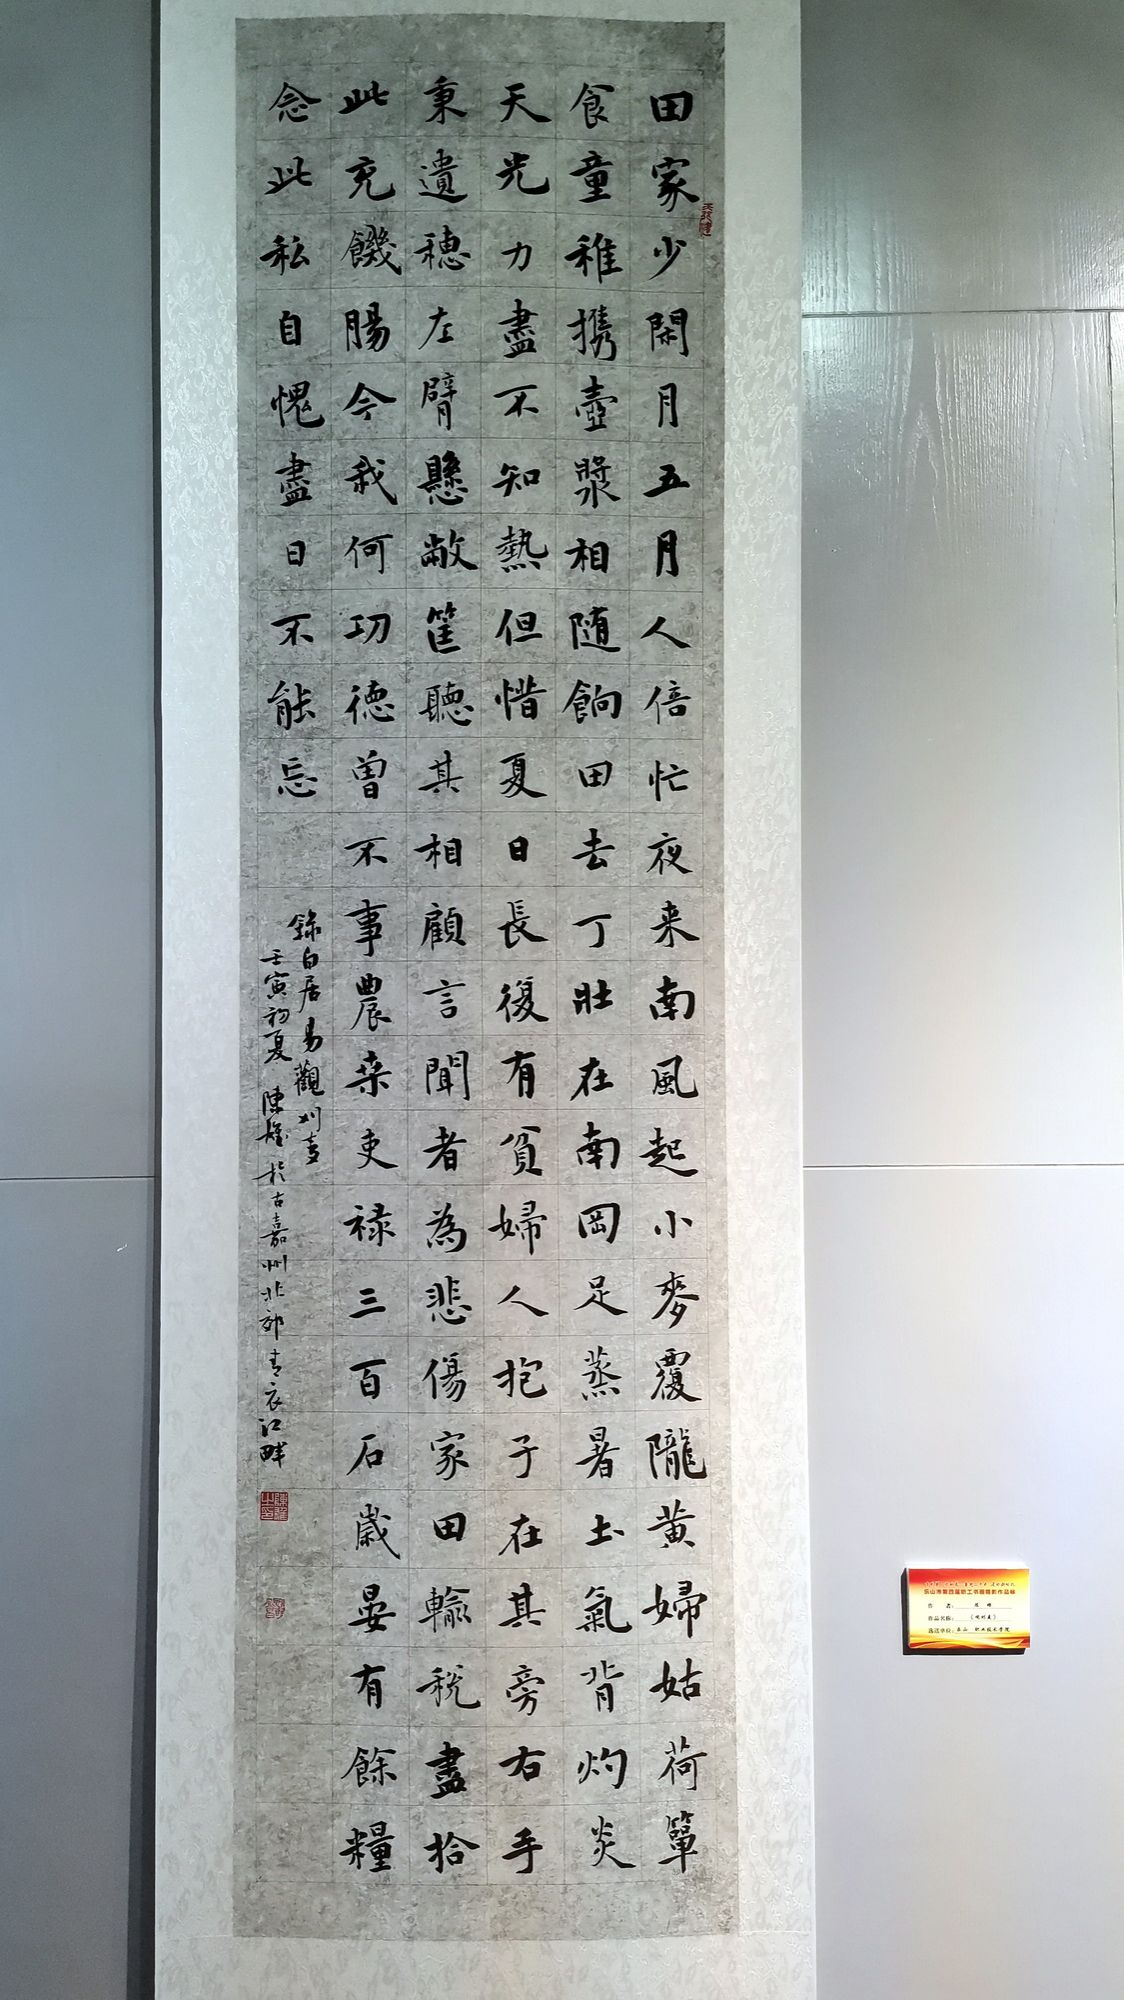 田家少閑月五月人倍忙夜来南風起小麥覆隴黄婦姑荷簞
食童稚携壺漿相随餉田去丁壯在南岡足蒸暑土氣背灼炎
天光力盡不知熱但惜夏日長復有貧婦人抱子在其旁右手
秉遺穂左臂懸敝筐聽其相顧言聞者為悲傷家田輸税盡拾
此充饑腸今我何功德曽不事農桒吏禄三百石歲晏有餘糧
念此私自愧盡日不能忘
錄白居易觀刈麦
壬寅初夏 陳雄於古嘉州北郊青衣江畔
乐山市第四届职工书画摄影作品展
作 者:
作品名称:《观刈麦》
选送单位:乐山 职业技术学院